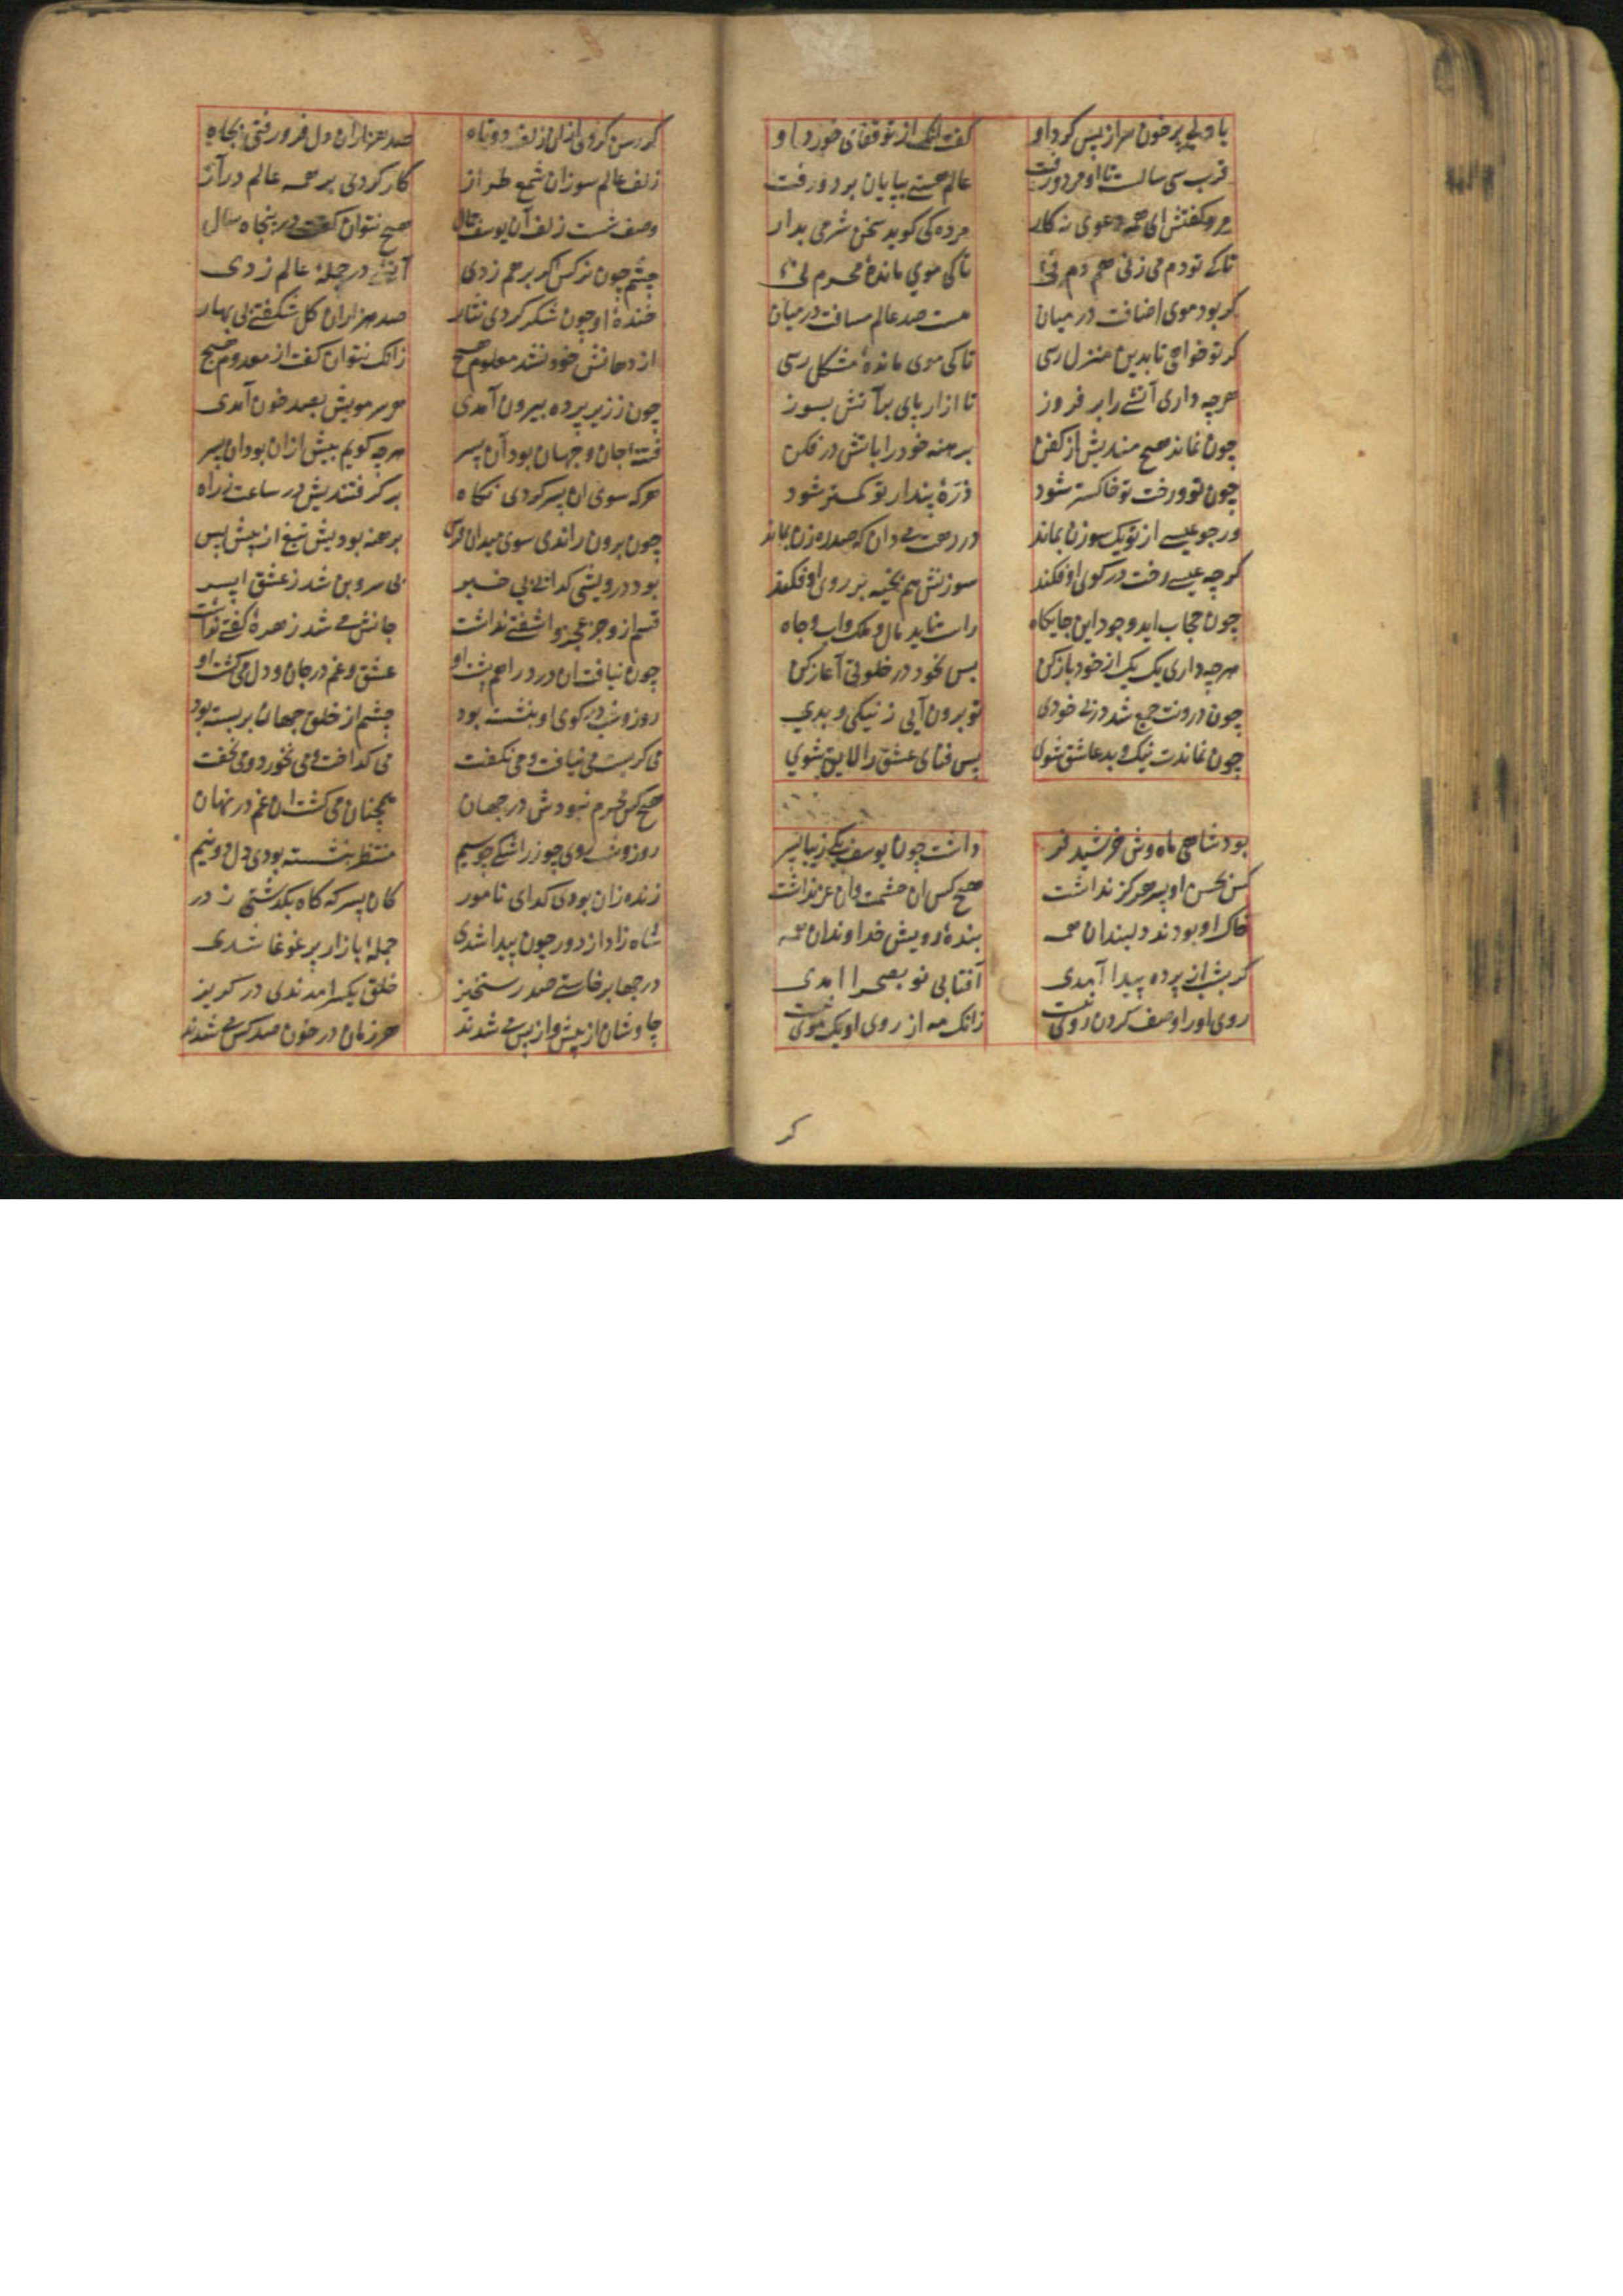 با دلی پر خون سر از پس کرد او
گفت آنک از تو قفائی خورد او
قرب سی سالست تا او مرد و رفت
عالم هستی بپایان برد و رفت
مرد گفتش ای همه دعوی نه کار
مرده کی گوید سخن شرمی بدار
تا که تو دم می زنی همدم نی
تا که مویی مانده محرم نی
گر بود موی اضافت در میان
هست صد عالم مسافت در میان
گر تو خواهی تا بدین منزل رسی
تا که موی مانده مشکل رسی
هرچه داری آتشی را بر فروز
تا ازار پای بر آتش بسوز
چون نماند هیچ مندیش از کفن
برهنه خود را باتش در فکن
چون تو و رخت تو خاکستر شود
ذره پندار تو کمتر شود
ور چو عیسی از تو یک سوزن بماند
در رهت می دان که صد ره زن بماند
گرچه عیسی رخت در کوی او فکند
سوزنش هم بخیه بر روی او فکند
چون حجاب اید وجود این جایکاه
راست ناید مال و ملک و اب و جاه
هرچه داری یک یک از خود باز کن
پس بخود در خلوتی آغاز کن
چون درونت جمع شد در بی خودی
تو برون آیی ز نیکی و بدی
چون نماندت نیک و بد عاشق شوی
پس فنای عشق را لایق شوی
بود شاهی ماه وش خورشید فر
داشت چون یوسف یکی زیبا پسر
کس بحسن او پسر هرکز نداشت
هیچ کس ان حشمت و ان عز نداشت
خاک او بودند دلبندان همه
بنده رویش خداوندان همه
گر بشب از پرده پیدا آمدی
آفتابی نو بصحرا امدی
روی او را وصف کردن روی نیست
زانک مه از روی او یک موی نیست
گر
گر رسن کردی ازان زلف دوتاه
صد هزاران دل فرو رفتی بچاه
زلف عالم سوز ان شمع طراز
کار کردی بر همه عالم دراز
وصف شست زلف آن یوسف جمال
هیچ نتوان گفت در پنجاه سال
چشم چون نرکس اگر بر هم زدی
آتشی در جمله عالم زدی
خنده او چون شکر کردی نثار
صد هزاران کل شکفتی بی بهار
از دهانش خود نشد معلوم هیچ
زانک نتوان گفت از معدوم هیچ
چون ز زیر پرده بیرون آمدی
هر سر مویش بصد خون آمدی
فتنه جان و جهان بود آن پسر
هرچه کویم بیش ازان بود ان پسر
هرکه سوی ان پسر کردی نکاه
بر کرفتندیش در ساعت ز راه
چون برون راندی سوی میدان فرس
برهنه بودیش تیغ از پیش و پس
بود درویشی کدائی بی خبر
بی سر و بن شد ز عشق ان پسر
قسم ازو جز عجز و اشفتی نداشت
جانش می شد زهره گفتی نداشت
چون نیافت ان درد را هم پشت او
عشق و غم در جان و دل می کشت او
روز و شب در کوی او بنشسته بود
چشم از خلق جهان بر بسته بود
هیچ کس محرم نبودش در جهان
همچنان می کشت ان غم در نهان
روز و شب روی چو زر اشکی چو سیم
منتظر بنشسته بودی دل دو نیم
زنده زان بودی کدای نامور
کان پسر که گاه بگذشتی ز در
شاه زاد از دور چون پیدا شدی
جمله بازار پر غوغا شدی
در جهان برخاستی صد رستخیز
خلق یکسر امدندی در کریز
چاوشان از پیش و از پس می شدند
هر زمان در خون صد کس می شدند